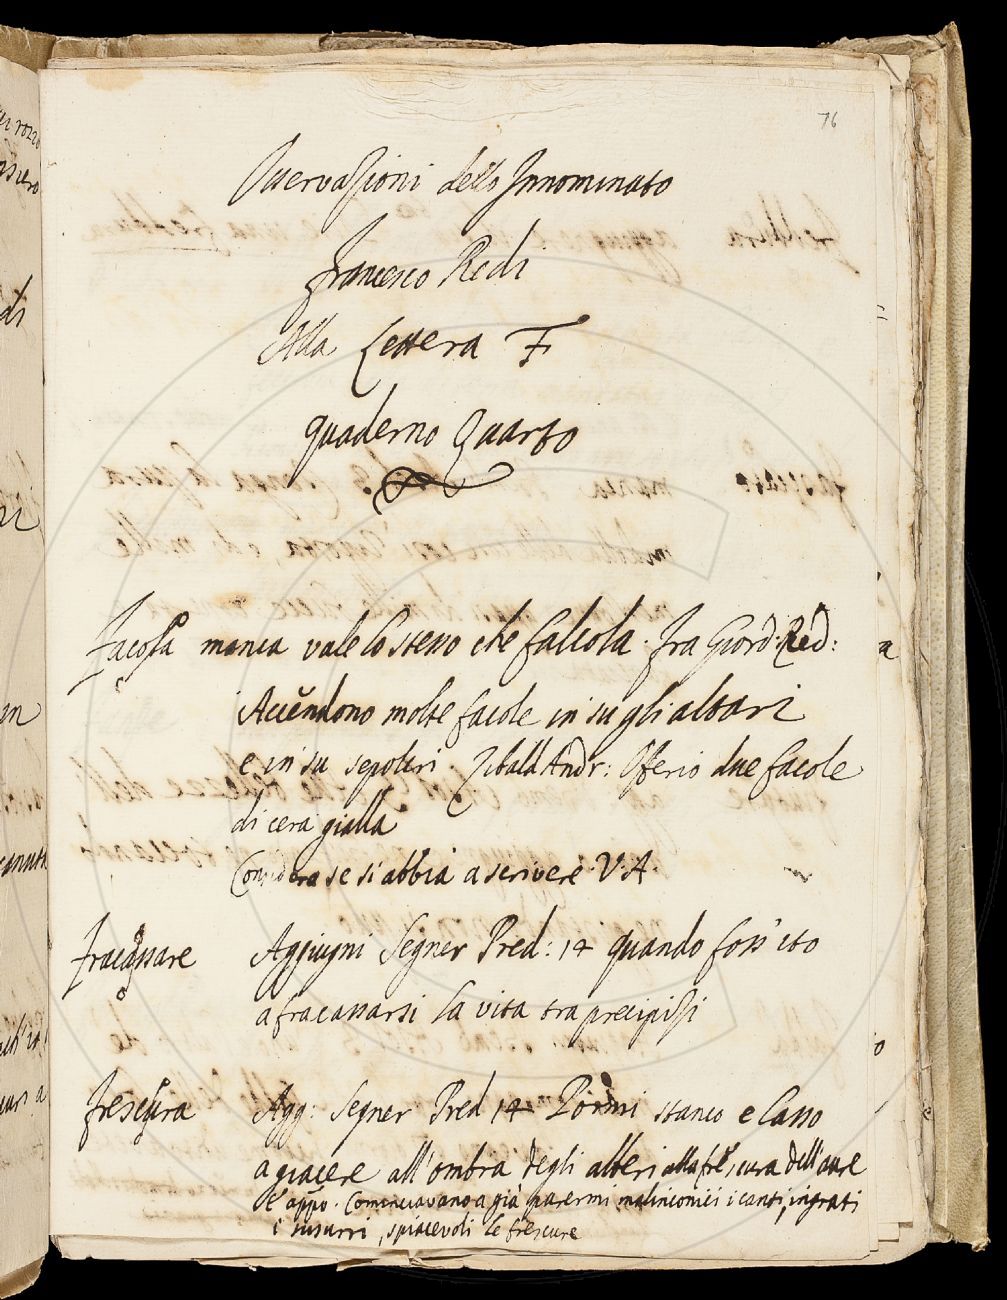 76
Osservazioni dello Innominato
Francesco Redi
Alla Lettera F
quaderno Quarto
Facola manca vale lo stesso che falcola. Fra Giord: Red:
Accéndono molte facole in su gli altari
e in su sepolcri Zibald Andr: Offerio due facole
di cera gialla
Considera se si abbia a scrivere. V. A.
fracassare Aggiugni Segner Pred: 14 quando foss' ito
a fracassarsi la vita tra precipizi
frescura Agg: Segner Pred 14 stanco e lasso
a giacere all'ombra degli alberi alla frescura dell'aure
E appo. Cominciavano a già parermi malinconici i canti, ingrati
i susurri, spiacevoli le frescure